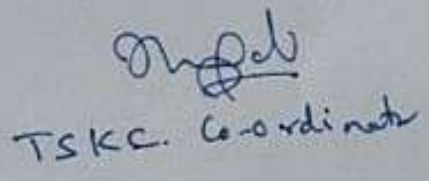 TSKC. Co-ordinator